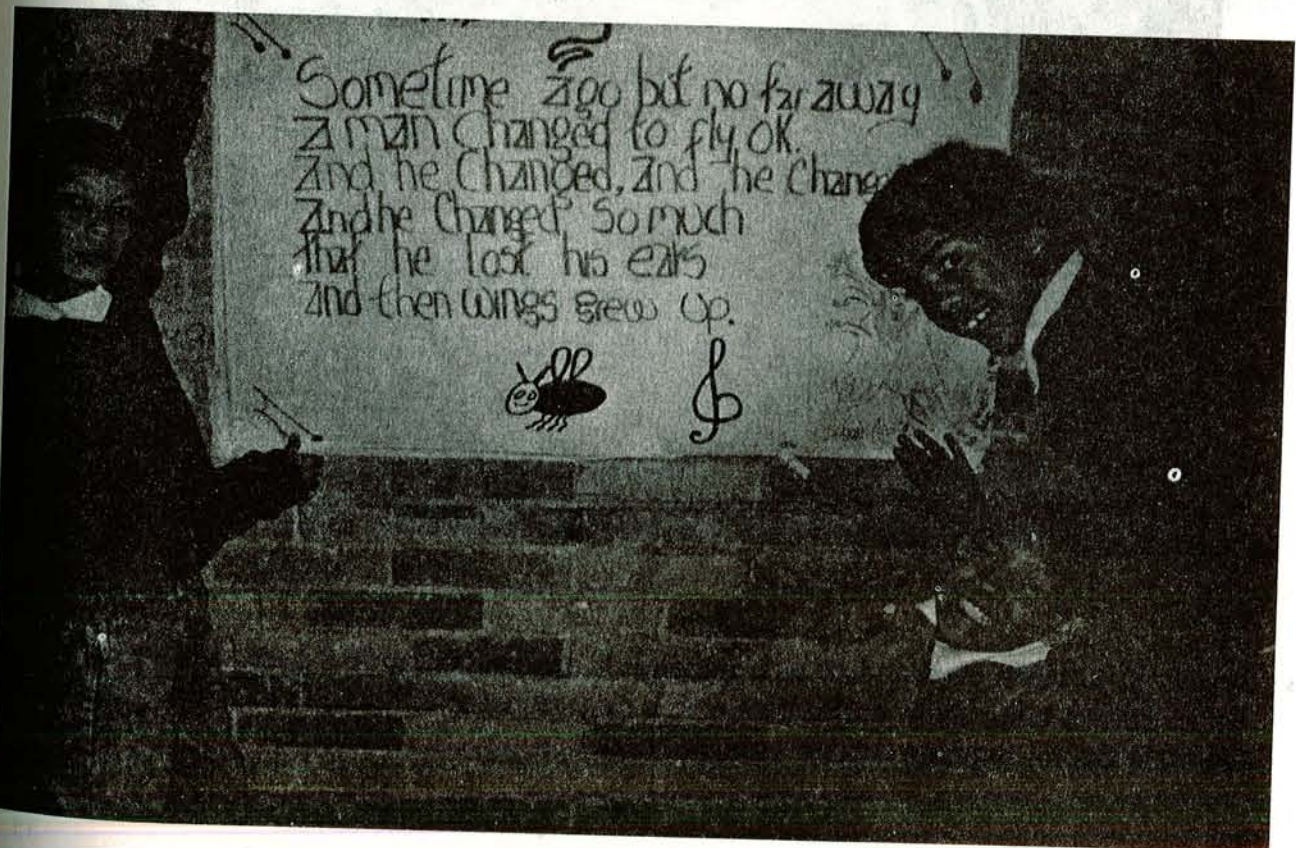 Sometime ago but no far away
a man Changed to fly OK.
And he Changed, and he Chang
And he Changed so much
that he lost his ears
and then wings grew up.